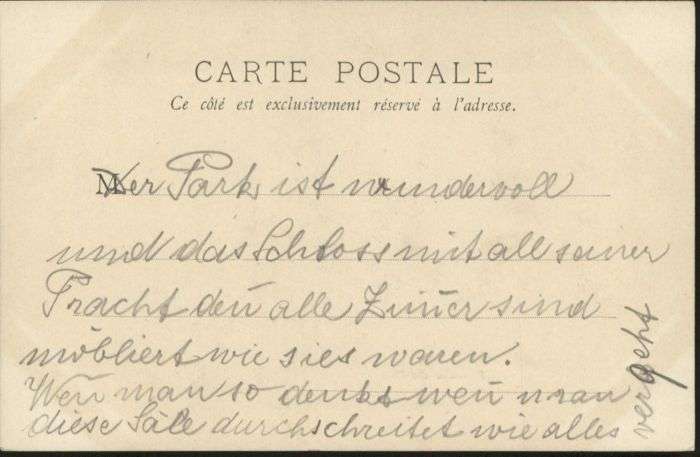 CARTE POSTALE
Ce côté est exclusivement réservé à l'adresse.
M
Der Park ist wundervoll
und das Schloss mit all seiner
Pracht deñ alle Zim̄er sind
möbliert wie sies waren.
Weñ man so denkt weñ man
diese Säle durchschreitet wie alles
vergeht